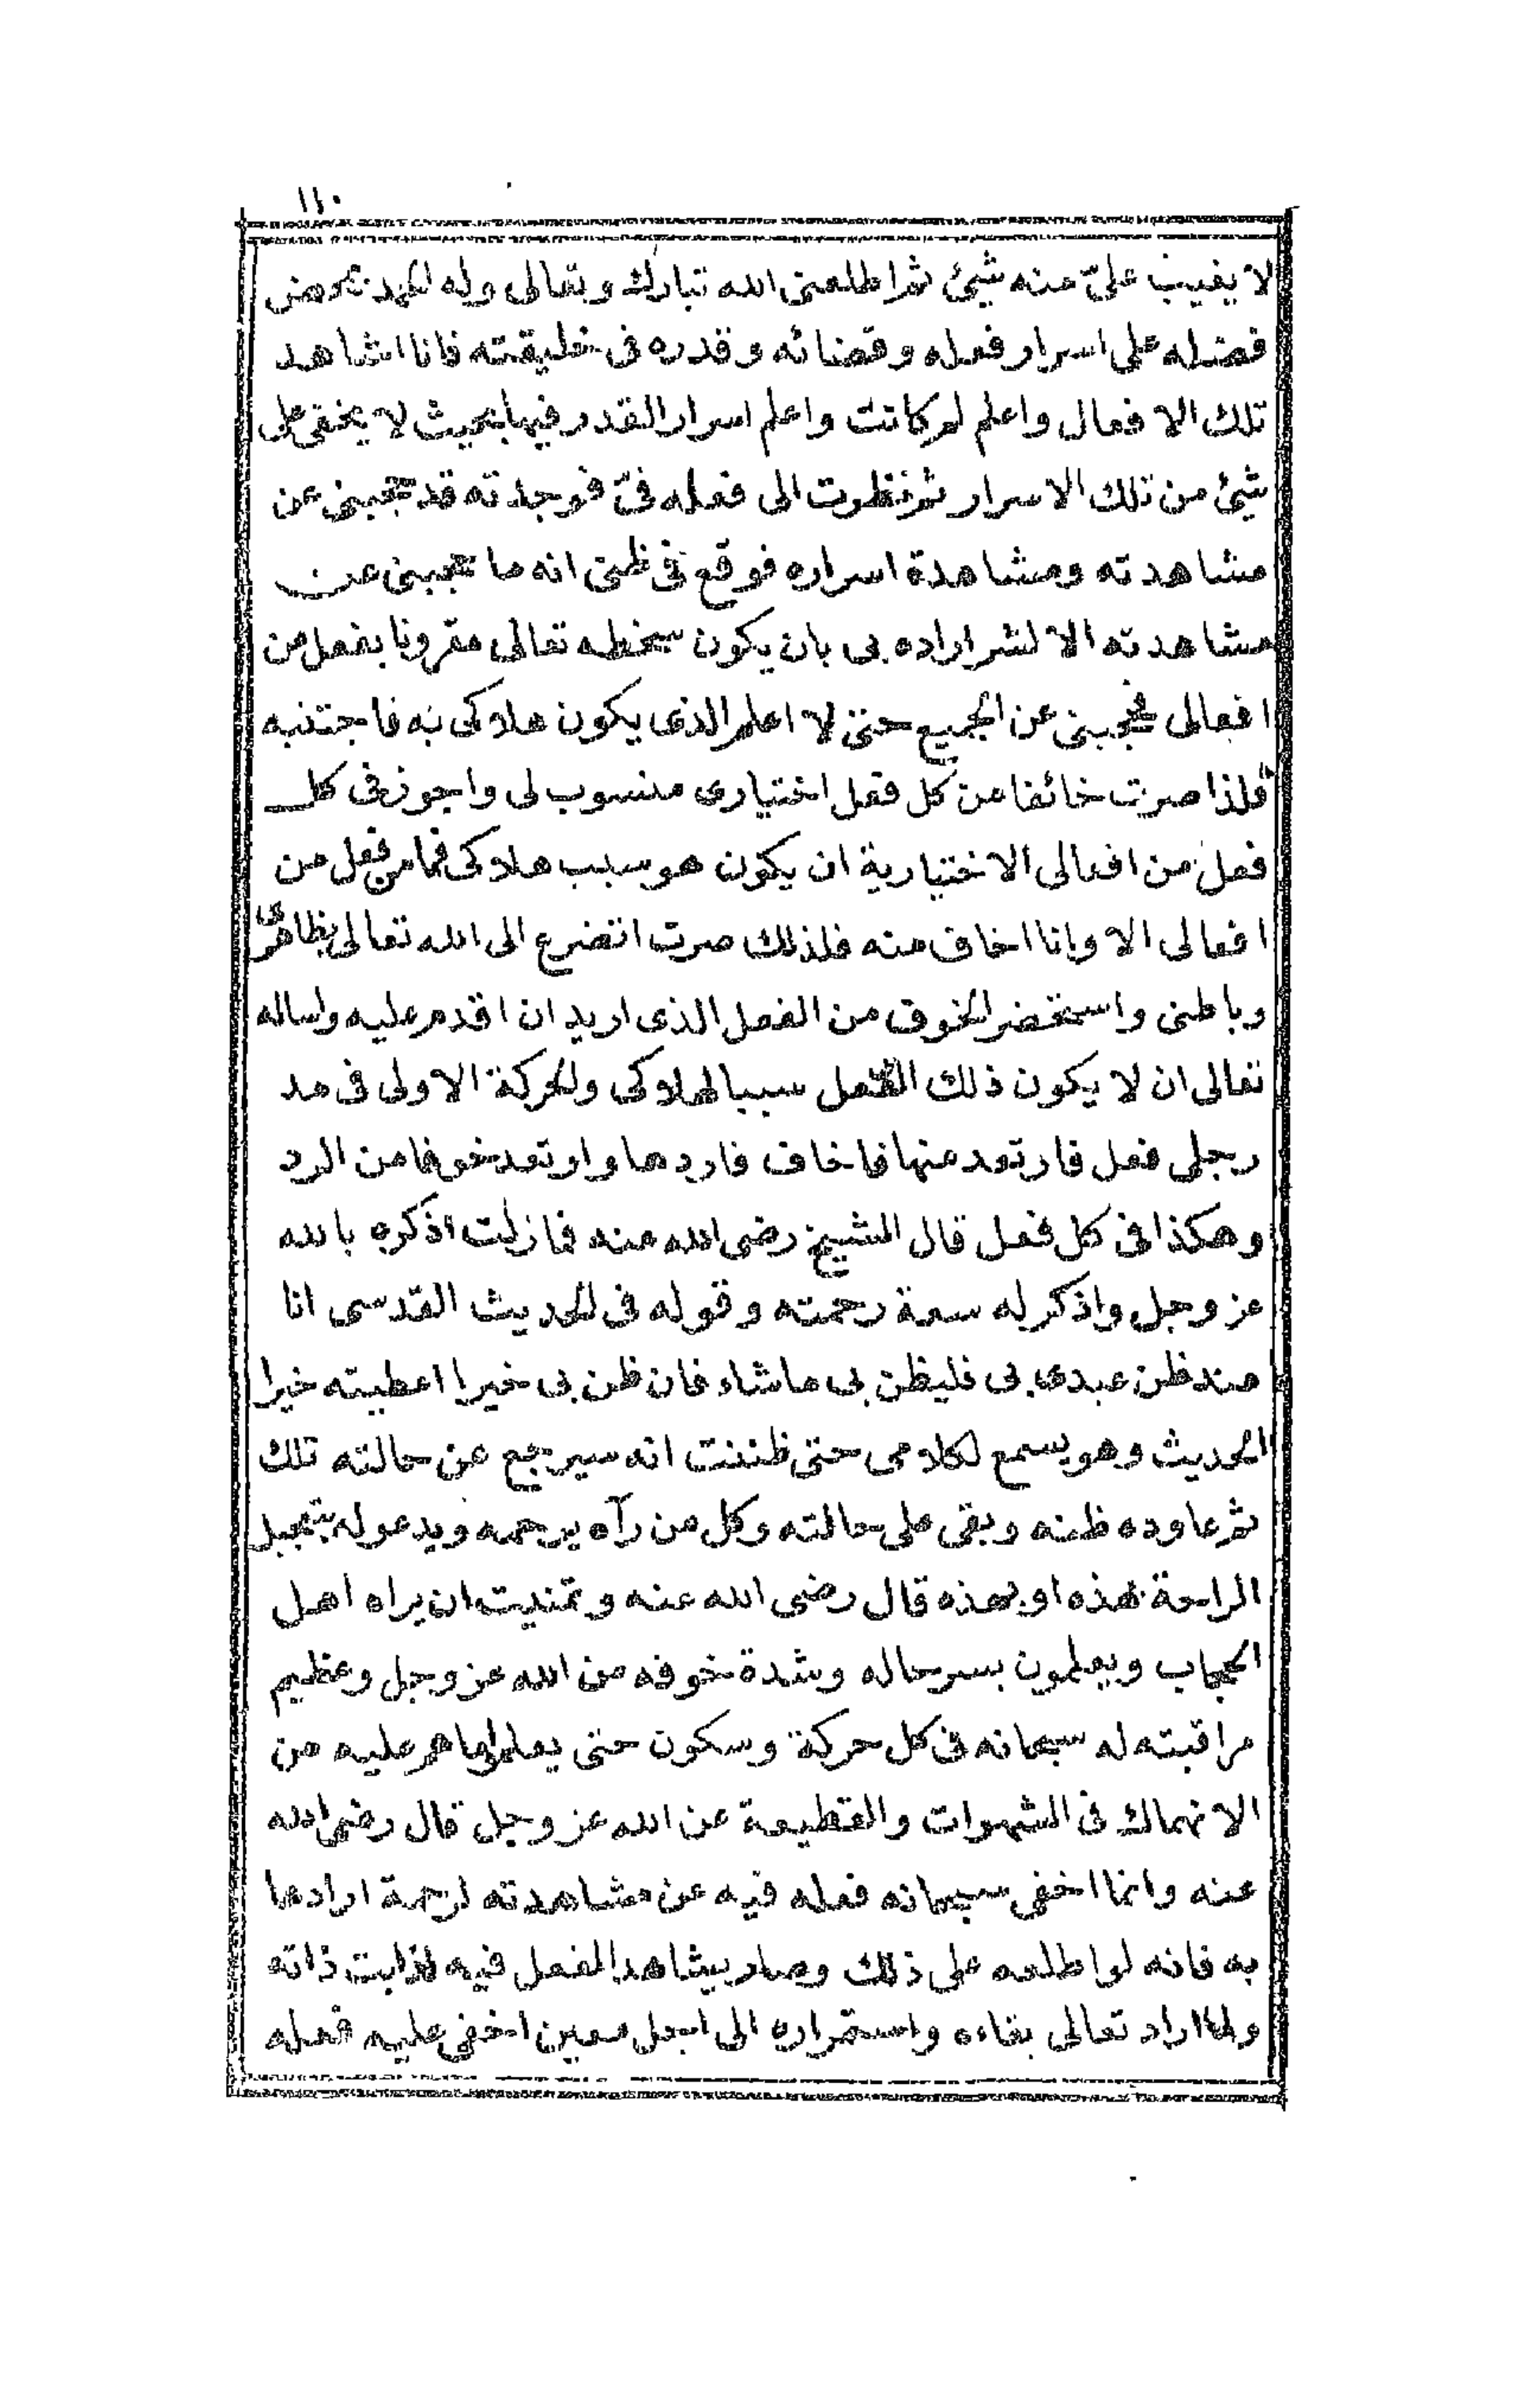 ١١٠
لا يغيب علىّ منه شيئ ثم اطلعنى الله تبارك وتعالى وله الحمد بمحض
فضله على اسرار فعله وقضائه وقدره فى خليقته فانا اشاهد
تلك الا فعال واعلم لم كانت واعلم اسرار القدر فيها بحيث لا يخفى على
شيئ من تلك الاسرار ثم نظرت الى فعله فىّ فوجدته قد حجبنى عن
مشاهدته ومشاهدة اسراره فوقع فى ظنى انه ما حجبنى عن
مشاهدته الا لشر اراده بى بان يكون سخطه تعالى مقرونا بفعل من
افعالى فحجبنى عن الجميع حتى لا اعلم الذى يكون هلاكى به فاجتنبه
فلذا صرت خائفا من كل فعل اختيارى منسوب لى واجوز فى كل
فعل من افعالى الاختيارية ان يكون هو سبب هلاكى فما من فعل من
افعالى الا وانا اخاف منه فلذلك صرت اتضرع الى الله تعالى بظاهرى
وباطنى واستحضر الخوف من الفعل الذى اريد ان اقدم عليه واساله
تعالى ان لا يكون ذلك الفعل سببا لهلاكى والحركة الاولى فى مد
رجلى فعل فارتعد عنها فاخاف فاردها وارتعد خوفا من الرد
وهكذا فى كل فعل قال الشيخ رضى الله عنه فما زلت اذكره بالله
عز وجل واذكر له سعة رحمته وقوله فى الحديث القدسى انا
عند ظن عبدى بى فليظن بى ما شاء فان ظن بى خيرا اعطيته خيرا
الحديث وهو يسمع لكلامى حتى ظننت انه سيرجع عن حالته تلك
ثم عاوده ظنه وبقى على حالته وكل من رآه يرحمه ويدعو له بتعجيل
الراحة بهذه او بهذه قال رضى الله عنه وتمنيت ان يراه اهل
الحجاب ويعلمون بسر حاله وشدة خوفه من الله عز وجل وعظيم
مراقبته له سبحانه فى كل حركة وسكون حتى يعلموا ما هم عليه من
الانهماك فى الشهوات والقطيعة عن الله عز وجل قال رضى الله
عنه وانما اخفى سبحانه فعله فيه عن مشاهدته لرحمة ارادها
به فانه لو اطلعه على ذلك وصار يشاهد الفعل فيه لذابت ذاته
ولما اراد تعالى بقاءه واستمراره الى اجل معين اخفى عليه فعله